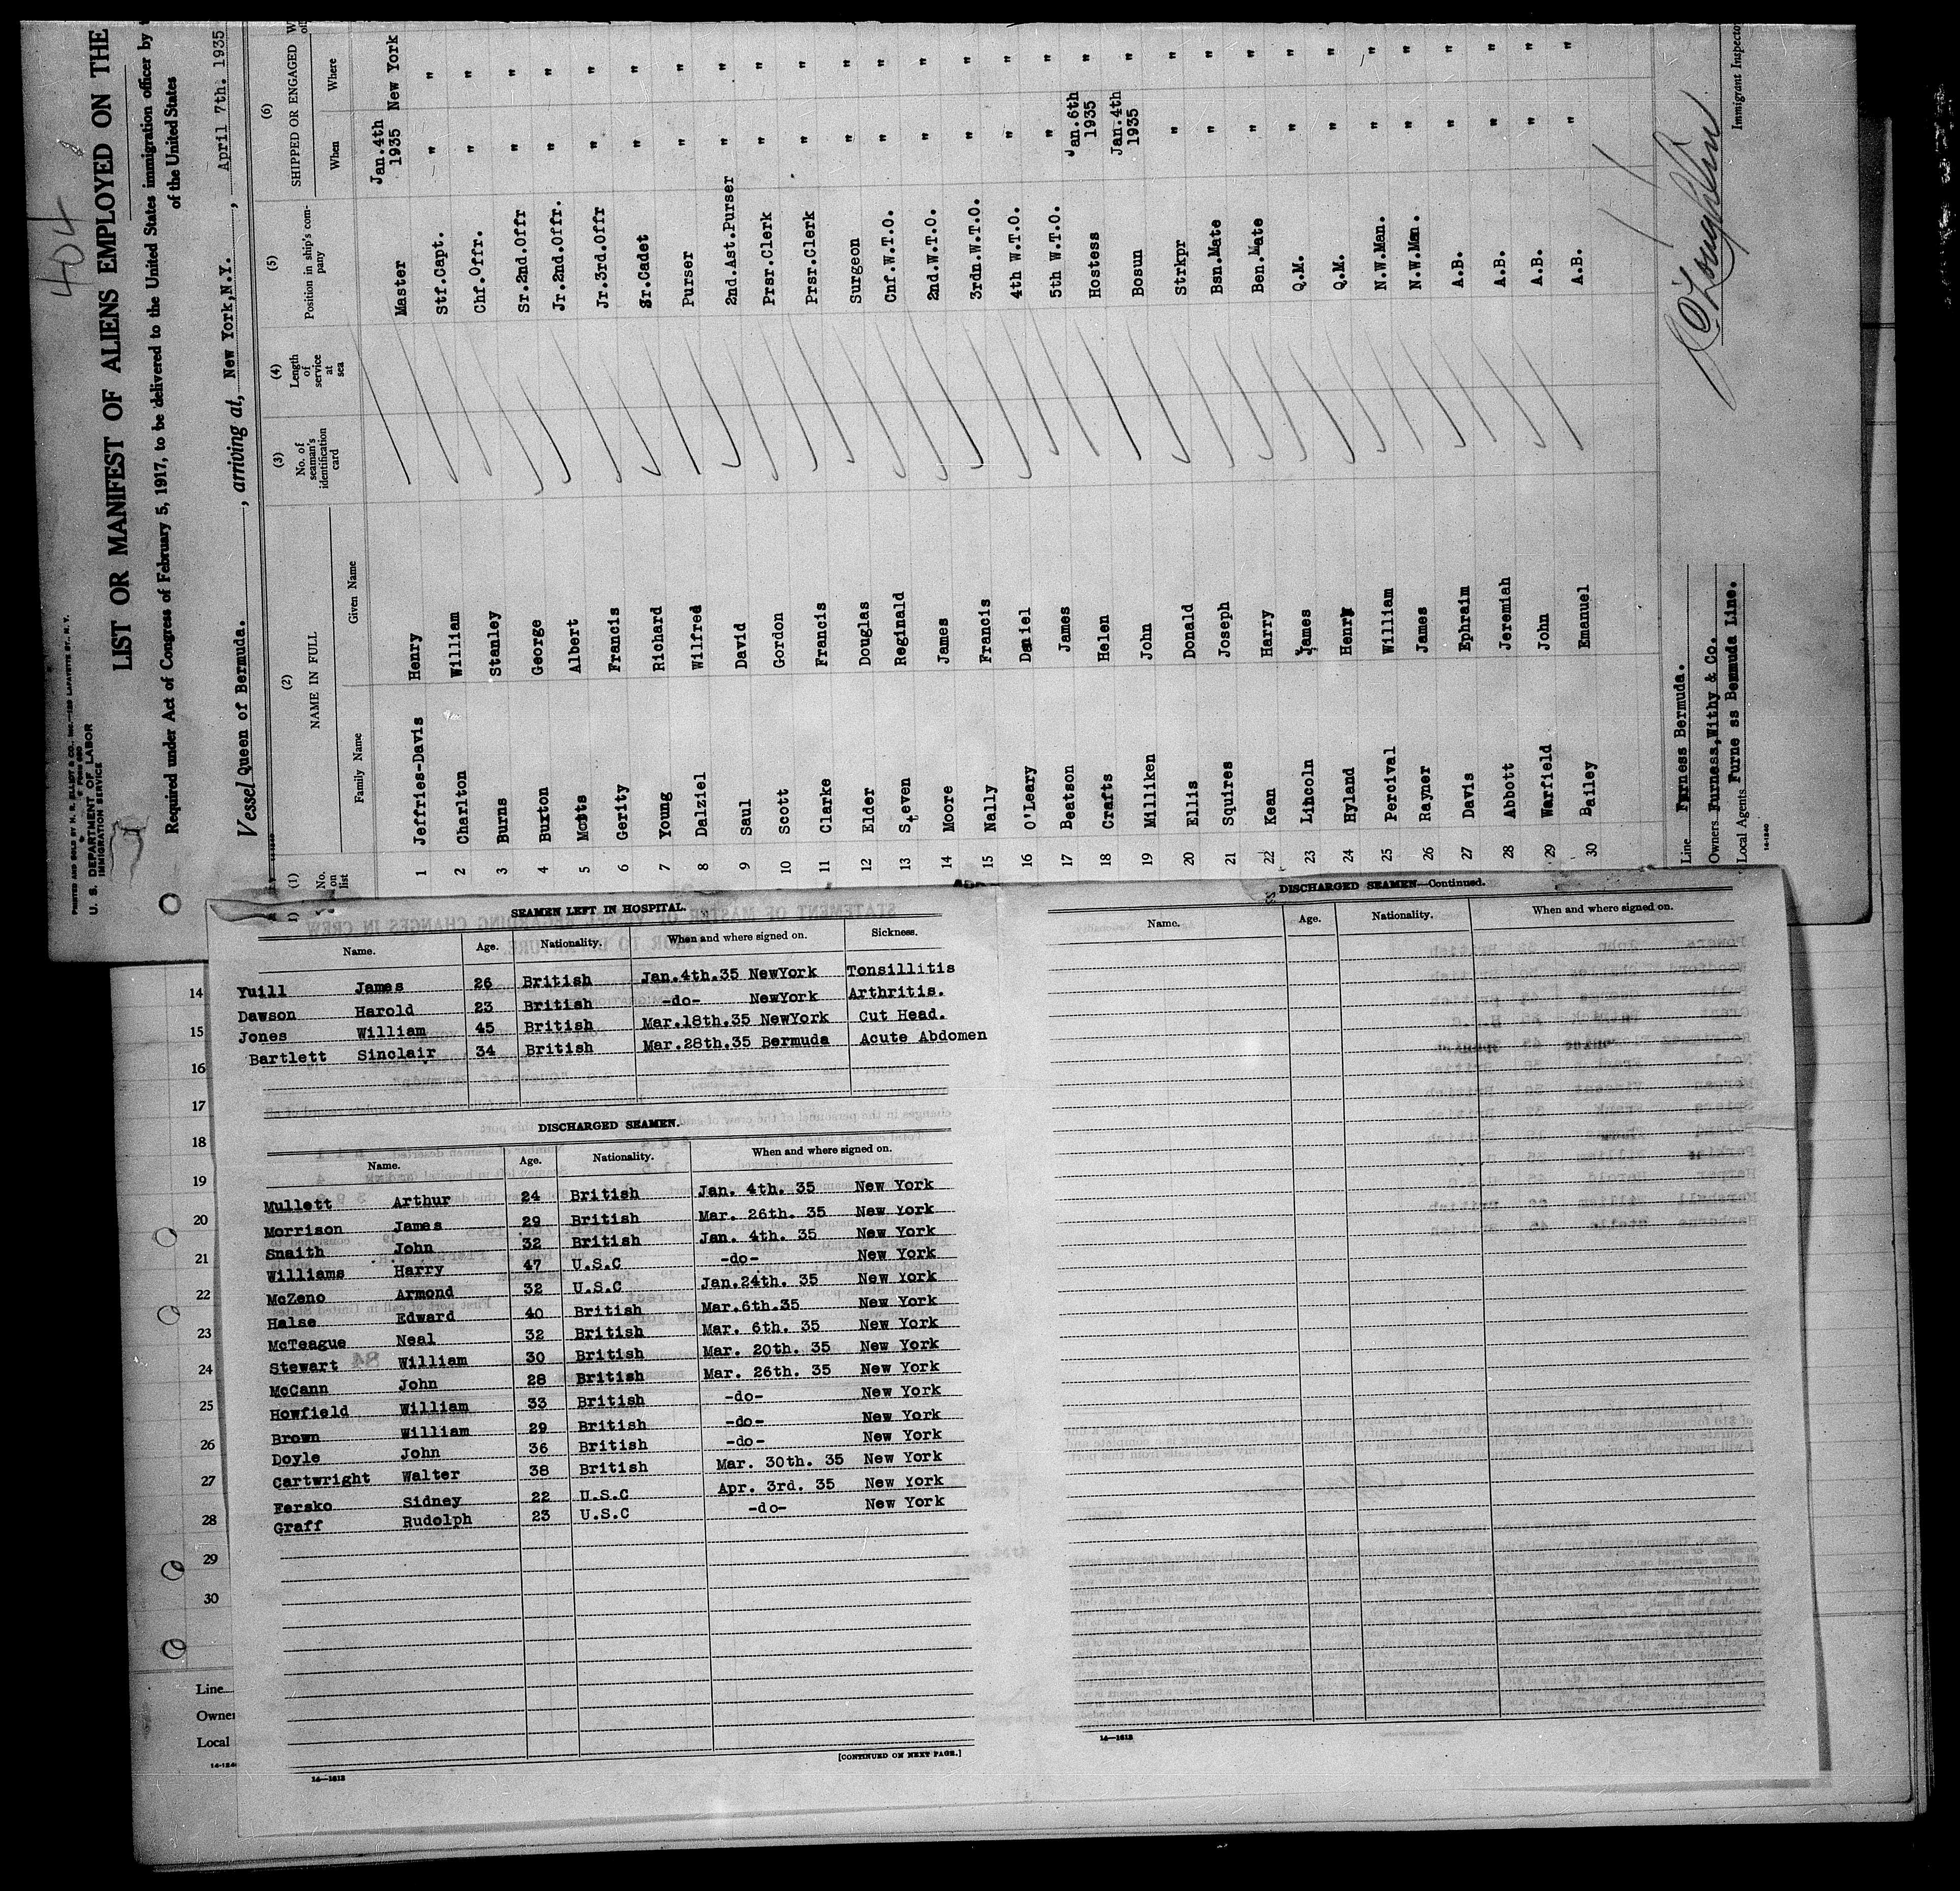 404
PRINTED AND SOLD BY H. R. ELLIOT & CO., INC.—129 LAFAYETTE ST., N.Y.
U. S. DEPARTMENT OF LABOR
IMMIGRATION SERVICE
LIST OR MANIFEST OF ALIENS EMPLOYED ON THE
Required under Act of Congress of February 5, 1917, to be delivered to the United States immigration officer by
of the United States
Vessel Queen of Bermuda. , arriving at, New York,N.Y. , April 7th. 1935
(1) (2) (3) (4) (5) (6)
No. on list NAME IN FULL No. of seaman's identification card Length of service at sea Position in ship's company SHIPPED OR ENGAGED
Family Name Given Name When Where
1 Jeffries-Davis Henry Master Jan.4th 1935 New York
2 Charlton William Stf.Capt. " "
3 Burns Stanley Chf.Offr. " "
4 Buxton George Sr.2nd.Offr " "
5 Motts Albert Jr.2nd.Offr. " "
6 Gerity Francis Jr.3rd.Offr " "
7 Young Richard Sr.Cadet " "
8 Dalziel Wilfred Purser " "
9 Saul David 2nd.Ast.Purser " "
10 Scott Gordon Prsr.Clerk " "
11 Clarke Francis Prsr.Clerk " "
12 Elder Douglas Surgeon " "
13 Steven Reginald Cnf.W.T.O. " "
14 Moore James 2nd.W.T.O. " "
15 Nally Francis 3rdn.W.T.O. " "
16 O'Leary Daniel 4th W.T.O. " "
17 Beatson James 5th W.T.O. " "
18 Crafts Helen Hostess Jan.6th 1935 "
19 Milliken John Bosun Jan.4th 1935 "
20 Ellis Donald Strkpr " "
21 Squires Joseph Bsn.Mate " "
22 Kean Harry Bsn.Mate " "
23 Lincoln James Q.M. " "
24 Hyland Henry Q.M. " "
25 Percival William N.W.Man. " "
26 Rayner James N.W.Man. " "
27 Davis Ephraim A.B. " "
28 Abbott Jeremiah A.B. " "
29 Warfield John A.B. " "
30 Bailey Emanuel A.B. " "
Line Furness Bermuda.
Owners Furness,Withy & Co.
Local Agents Furne ss Bemmuda Line.
14-1240
Immigrant Inspector
SEAMEN LEFT IN HOSPITAL.
Name. Age. Nationality. When and where signed on. Sickness.
Yuill James 26 British Jan.4th.35 NewYork Tonsillitis
Dawson Harold 23 British -do- NewYork Arthritis.
Jones William 45 British Mar.18th.35 NewYork Cut Head.
Bartlett Sinclair 34 British Mar.28th.35 Bermuda Acute Abdomen
DISCHARGED SEAMEN.
Name. Age. Nationality. When and where signed on.
Mullett Arthur 24 British Jan. 4th. 35 New York
Morrison James 29 British Mar. 26th. 35 New York
Snaith John 32 British Jan. 4th. 35 New York
Williams Harry 47 U.S.C -do- New York
McZeno Armond 32 U.S.C Jan.24th. 35 New York
Halse Edward 40 British Mar.6th.35 New York
McTeague Neal 32 British Mar. 6th. 35 New York
Stewart William 30 British Mar. 20th. 35 New York
McCann John 28 British Mar. 26th. 35 New York
Howfield William 33 British -do- New York
Brown William 29 British -do- New York
Doyle John 36 British -do- New York
Cartwright Walter 38 British Mar. 30th. 35 New York
Fersko Sidney 22 U.S.C Apr. 3rd. 35 New York
Graff Rudolph 23 U.S.C -do- New York
[CONTINUED ON NEXT PAGE.]
14—1613
DISCHARGED SEAMEN—Continued.
Name. Age. Nationality. When and where signed on.
14—1613
14
15
16
17
18
19
20
21
22
23
24
25
26
27
28
29
30
Line
Owner
Local